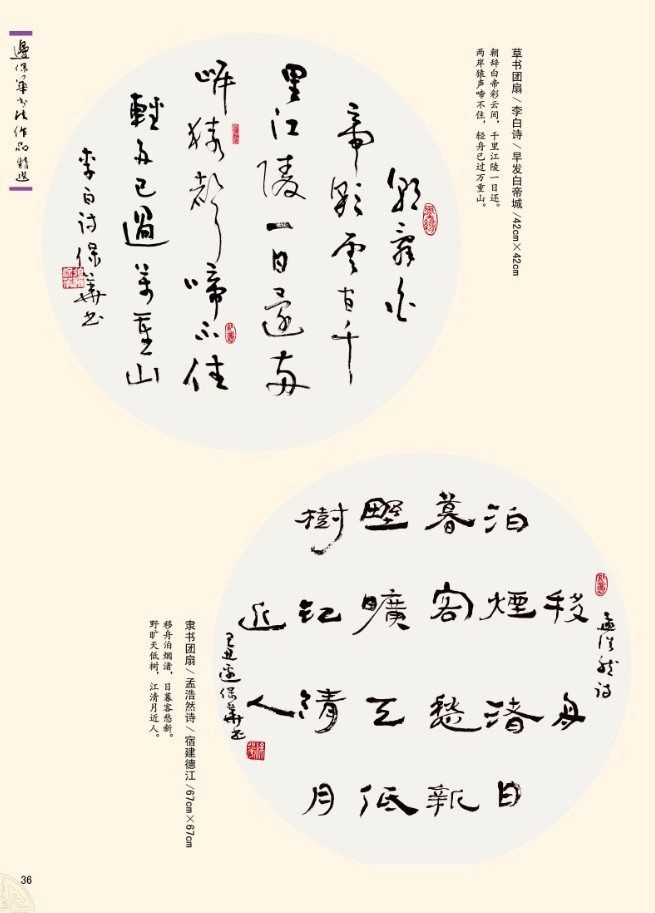 邊保華书法作品精選
草书团扇/李白诗/早发白帝城/42cm×42cm
朝辞白帝彩云间，千里江陵一日还。
两岸猿声啼不住，轻舟已过万重山。
朝辞白
帝彩雲间千
里江陵一日還两
岸猿声啼不住
輕舟已過万重山
李白诗保華书
孟浩然诗
移舟
泊煙渚日
暮客愁新
野曠天低
樹江清月
近人
己丑邊保華书
隶书团扇/孟浩然诗/宿建德江/67cm×67cm
移舟泊烟渚，日暮客愁新。
野旷天低树，江清月近人。
36